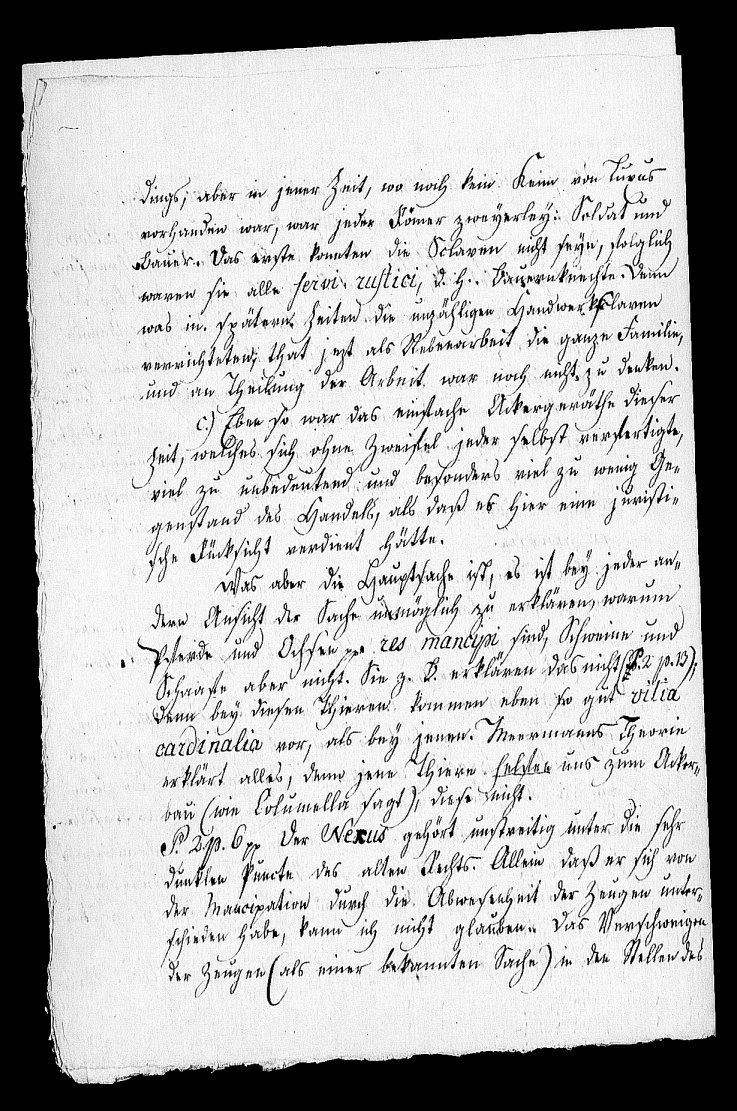 dings; aber in jener Zeit, wo noch kein Keim von Luxus
vorhanden war, war jeder Römer zweyerley: Soldat und
Bauer. Das erste konnten die Sclaven nicht seyn, folglich
waren sie alle servi rustici, d. h. Bauernknechte. Denn
was in spätern Zeiten die unzähligen Handwerkssclaven
verrichteten, that jezt als Nebenarbeit die ganze Familie,
und an Theilung der Arbeit war noch nicht zu denken.
c.) Eben so war das einfache Ackergeräthe dieser
Zeit, welches sich ohne Zweifel jeder selbst verfertigte,
viel zu unbedeutend und besonders viel zu wenig Ge-
genstand des Handels, als daß es hier eine juristi-
sche Rücksicht verdient hätte.
Was aber die Hauptsache ist, es ist bey jeder an-
dern Ansicht der Sache unmöglich zu erklären, warum
Pferde und Ochsen pp res mancipi sind, Schweine und
Schaafe aber nicht. Sie z. B. erklären das nicht (S. 2 p. 13);
denn bey diesen Thieren kommen eben so gut vilia
cardinalia vor, als bey jenen. Meermanns Theorie
erklärt alles, denn jene Thiere helfen uns zum Acker-
bau (wie Columella sagt), diese nicht.
S. 2. p. 6 pp Der Nexus gehört unstreitig unter die sehr
dunklen Puncte des alten Rechts. Allein daß er sich von
der Mancipation durch die Abwesenheit der Zeugen unter-
schieden habe, kann ich nicht glauben. Das Verschweigen
der Zeugen (als einer bekannten Sache) in den Stellen des